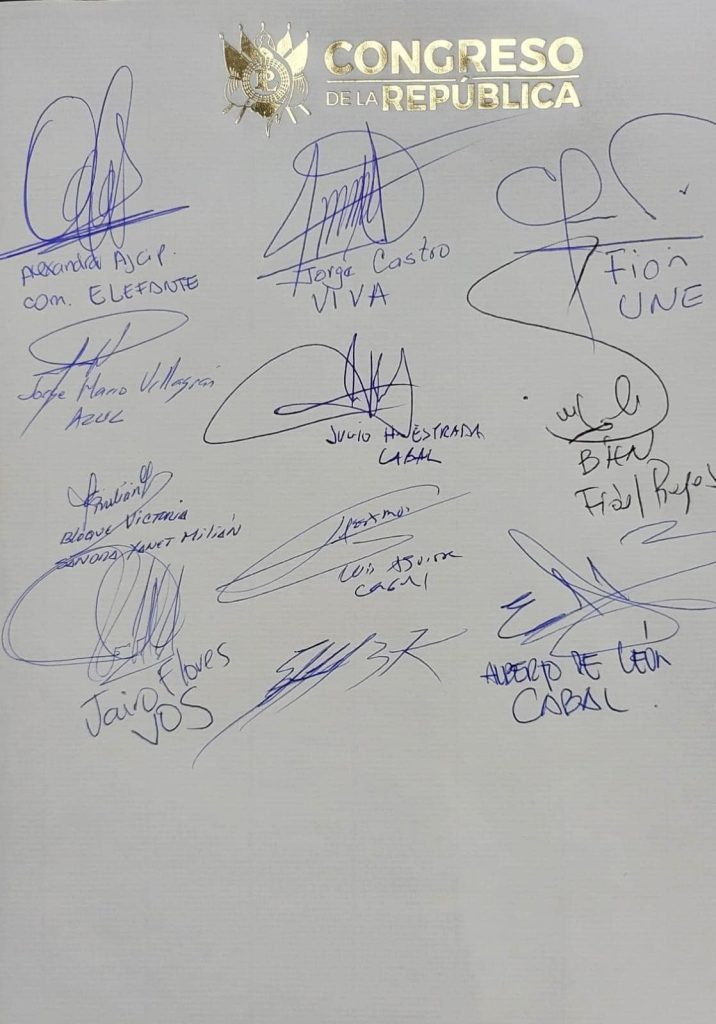 CONGRESO
DE LA REPÚBLICA
Alexandra Ajcip.
com. ELEFANTE
Jorge Castro
VIVA
Fion
UNE
Jorge Mario Villagrán
AZUL
JULIO H ESTRADA
CABAL
BIEN
Fidel Reyes
BLOQUE VICTORIA
SANDRA YANET MILIÁN
Luis Aguirre
CABAL
Jairo Flores
VOS
ALBERTO DE LEÓN
CABAL.